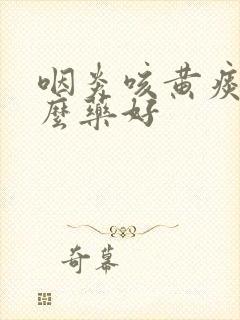 咽炎咳黄痰
麼藥好
奇幕